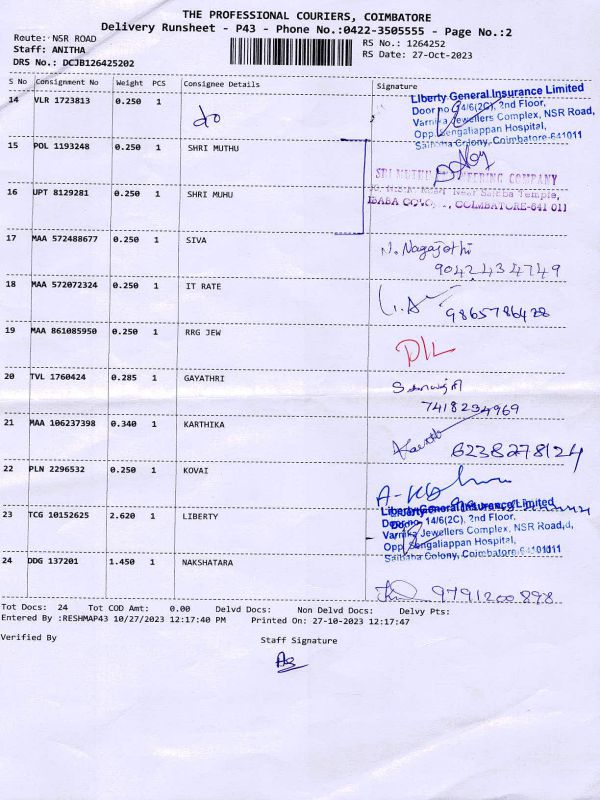 THE PROFESSIONAL COURIERS, COIMBATORE
Delivery Runsheet - P43 - Phone No.:0422-3505555 - Page No.:2
Route: NSR ROAD
RS No.: 1264252
Staff: ANITHA
RS Date: 27-Oct-2023
DRS No.: DCJB126425202
S No Consignment No Weight PCS Consignee Details Signature
14 VLR 1723813 0.250 1 do
Liberty General Insurance Limited
Door no 14/6(2C), 2nd Floor,
Varnika Jewellers Complex, NSR Road,
Opp Sengaliappan Hospital,
Saibaba Colony, Coimbatore-641011
15 POL 1193248 0.250 1 SHRI MUTHU
SRI COMPANY
Near Saibaba Temple,
COIMBATORE-641 011
16 UPT 8129281 0.250 1 SHRI MUHU
17 MAA 572488677 0.250 1 SIVA N. Nagajothi
9042434749
18 MAA 572072324 0.250 1 IT RATE
9865786428
19 MAA 861085950 0.250 1 RRG JEW D/L
20 TVL 1760424 0.285 1 GAYATHRI
7418234969
21 MAA 106237398 0.340 1 KARTHIKA
6238278124
22 PLN 2296532 0.250 1 KOVAI
23 TCG 10152625 2.620 1 LIBERTY
Liberty General Insurance Limited
Door no 14/6(2C), 2nd Floor,
Varnika Jewellers Complex, NSR Road,
Opp Sengaliappan Hospital,
Saibaba Colony, Coimbatore-641011
24 DDG 137201 1.450 1 NAKSHATARA
9791200898
Tot Docs: 24 Tot COD Amt: 0.00 Delvd Docs: Non Delvd Docs: Delvy Pts:
Entered By :RESHMAP43 10/27/2023 12:17:40 PM Printed On: 27-10-2023 12:17:47
Verified By Staff Signature